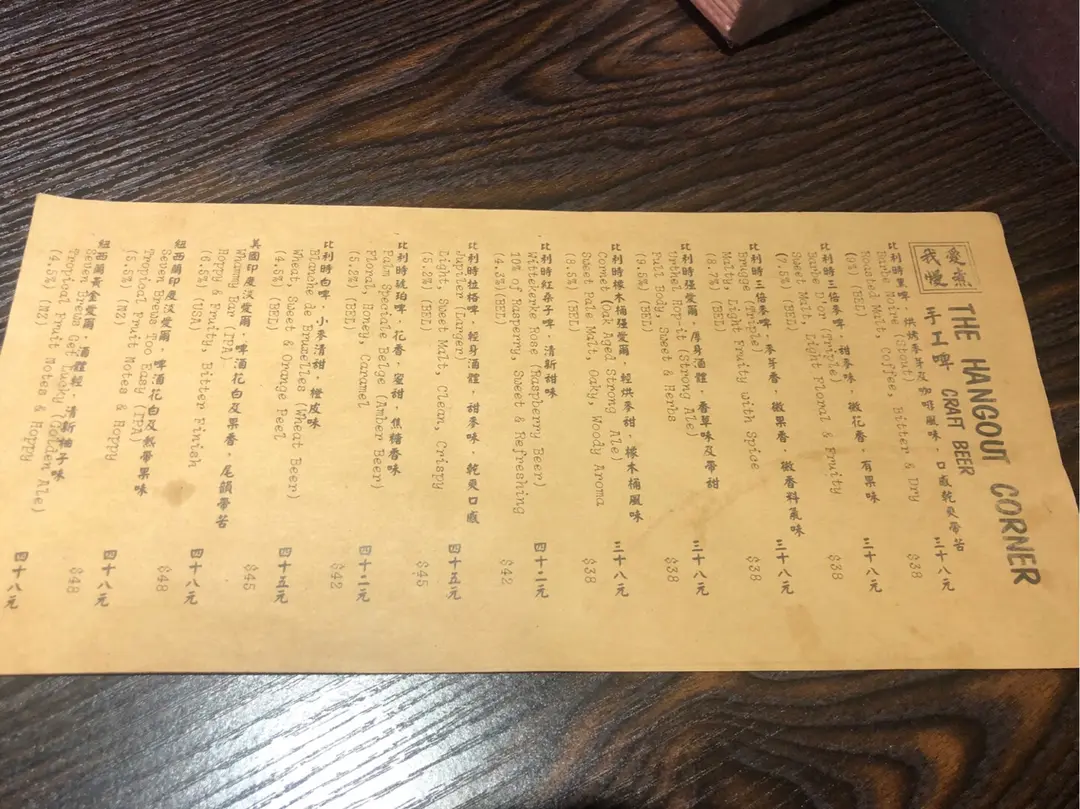 愛煮
我慢
THE HANGOUT CORNER
手工啤 CRAFT BEER
比利時黑啤．烘烤麥芽及咖啡風味．口感乾爽帶苦 三十八元
Barbe Noire (Stout) $38
Roasted Malt, Coffee, Bitter & Dry
(9%) (BEL)
比利時三倍麥啤．甜麥味．微花香．有果味 三十八元
Barbe D'or (Triple) $38
Sweet Malt, Light Floral & Fruity
(7.5%) (BEL)
比利時三倍麥啤．麥芽香．微果香．微香料氣味 三十八元
Bruge (Triple) $38
Malty, Light Fruity with Spice
(8.7%) (BEL)
比利時強愛爾．厚身酒體．香草味及帶甜 三十八元
Urthel Hop-it (Strong Ale) $38
Full Body, Sweet & Herbs
(9.5%) (BEL)
比利時橡木桶強愛爾．輕烘麥甜．橡木桶風味 三十八元
Cornet (Oak Aged Strong Ale) $38
Sweet Pale Malt, Oaky, Woody Aroma
(8.5%) (BEL)
比利時紅桑子啤．清新甜味 四十二元
Wittekerke Rose (Raspberry Beer) $42
10% of Rasperry, Sweet & Refreshing
(4.3%) (BEL)
比利時拉格啤．輕身酒體．甜麥味．乾爽口感 四十五元
Jupiler (Larger) $45
Light, Sweet Malt, Clean, Crispy
(5.2%) (BEL)
比利時琥珀啤．花香．蜜甜．焦糖香味 四十二元
Palm Speciale Belge (Amber Beer) $42
Floral Honey, Caramel
(5.2%) (BEL)
比利時白啤．小麥清甜．橙皮味 四十五元
Blanche de Bruxelles (Wheat Beer) $45
Wheat, Sweet & Orange Peel
(4.5%) (BEL)
美國印度淡愛爾．啤酒花白及果香．尾韻帶苦 四十八元
Whammy Bar (IPA) $48
Hoppy & Fruity, Bitter Finish
(6.5%) (USA)
紐西蘭印度淡愛爾．啤酒花白及熱帶果味 四十八元
Seven Brews Too Easy (IPA) $48
Tropical Fruit Notes & Hoppy
(5.5%) (NZ)
紐西蘭黃金愛爾．酒體輕．清新柚子味 四十八元
Seven Brews Get Lucky (Golden Ale)
Tropical Fruit Notes & Hoppy
(4.5%) (NZ)